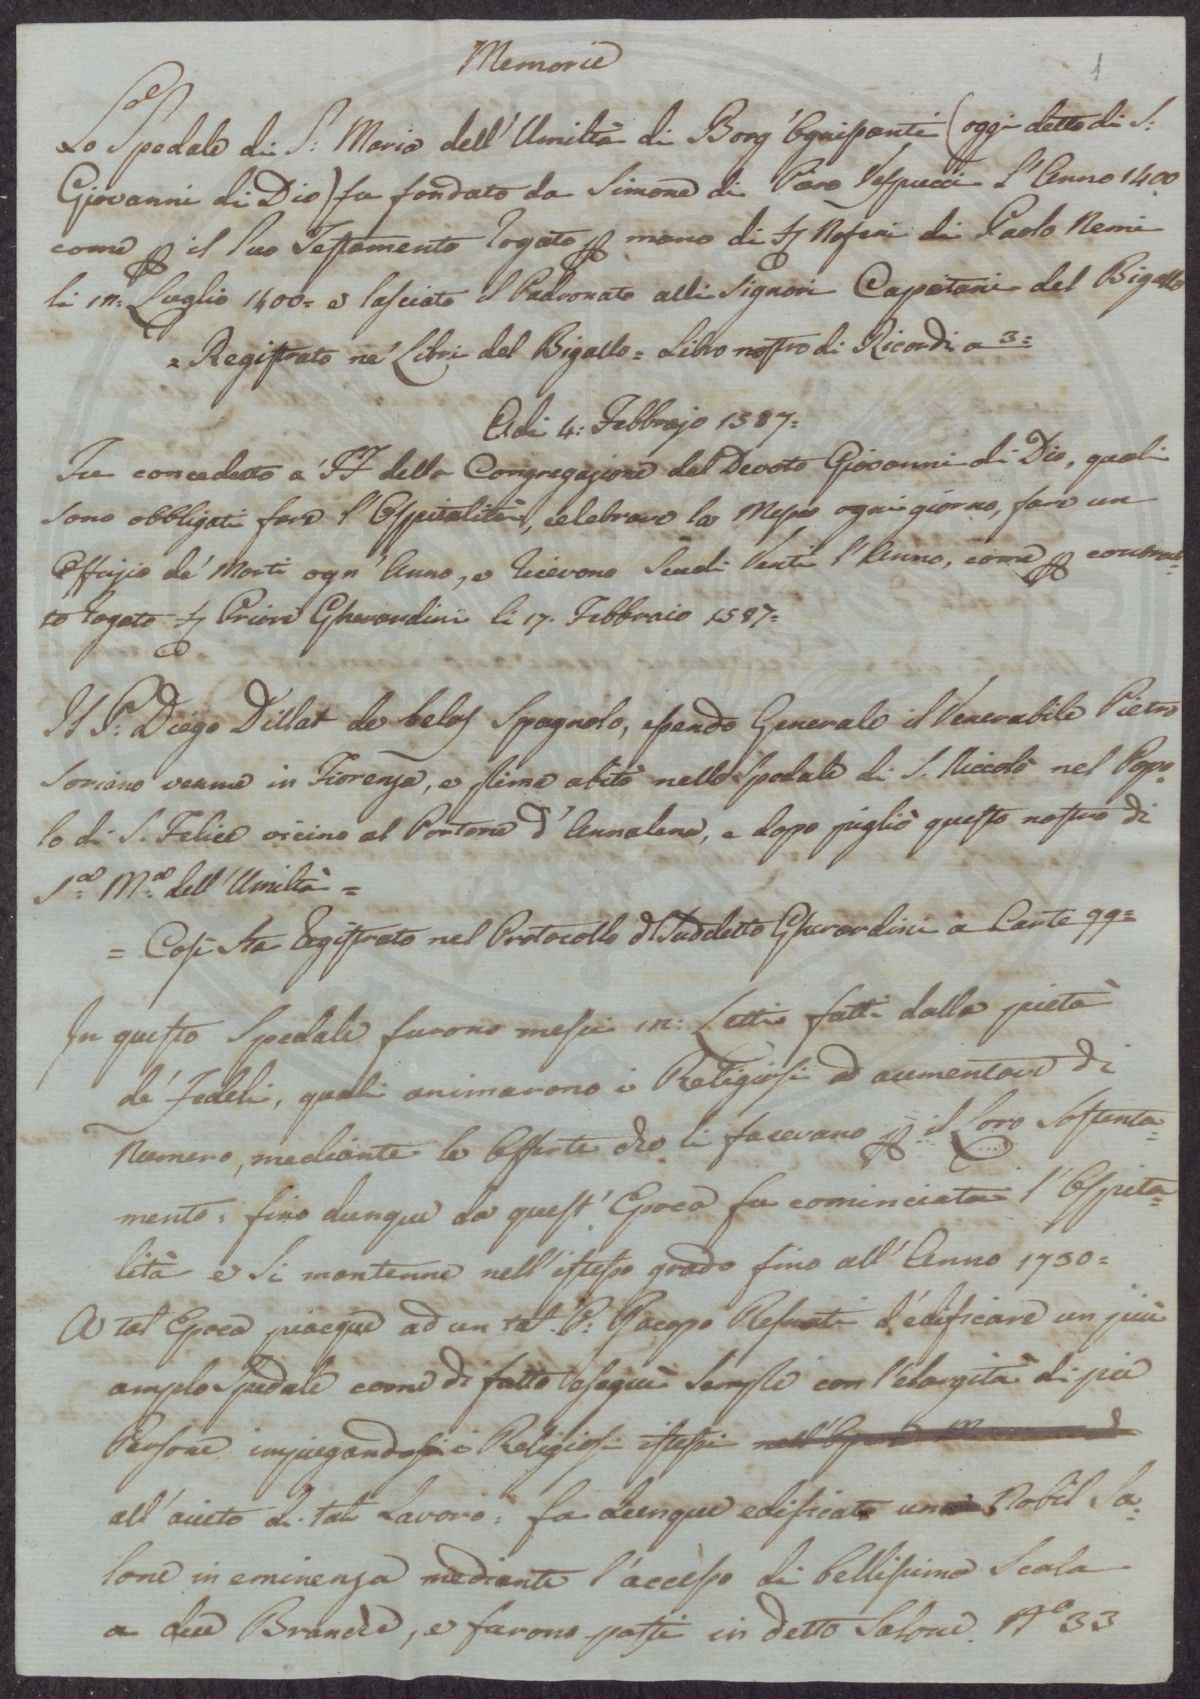 Memorie
1
Lo Spedale di S: Maria dell'Umiltà di Borg'Ognissanti (oggi detto di S:
Giovanni di Dio) fu fondato da Simone di Piero Vespucci l'Anno 1400
come p il suo Testamento rogato p mano di Naferi di Paolo Nemi
li in: Luglio 1400= e lasciato il Padronato alli Signori Capitani del Bigallo
= Registrato ne' Libri del Bigallo= Libro nostro di Ricordi a 3=
Adi 4: Febbrajo 1587=
Fu conceduto a' FF della Congregazione del Devoto Giovanni di Dio, quali
sono obbligati fare l'Ospitalità, celebrare la Messa ogni giorno, fare un
Offizio de' Morti ogn'Anno, e ricevono Scudi Venti l'Anno, come p contrat=
to rogato Priore Gherardini li 17. Febbraio 1587=
Il P: Diego Dillat de belos Spagnolo, essendo Generale il Venerabile Pietro
Soriano venne in Fiorenza, e prima abitò nello Spedale di S. Niccolò nel Popo=
lo di S. Felice vicino al Portone d'Annalena, e dopo pigliò questo nostro di
S.a M.a dell'Umiltà=
= Così sta registrato nel Protocollo d Suddetto Gherardini a Carte 99=
In questo Spedale furono messi in: Letti fatti dalla pietà
de' Fedeli, quali animarono i Religiosi ad aumentare di
Numero, mediante le Offerte che li facevano p il Loro Sostenta=
mento: fino dunque da quest'Epoca fu cominciata l'Ospita=
lità e si mantenne nell'istesso grado fino all'Anno 1730=
A tal Epoca piacque ad un tal P: Jacopo d'edificare un più
amplo Spedale come di fatto eseguì semple con l'elargità di più
Persone impiegandosi i Religiosi istessi
all'aiuto di tal Lavoro: fu dunque edificato un Nobil Sa=
lone in eminenza mediante l'accesso di bellissima Scala
a due Branche, e furono posti in detto Salone N° 33